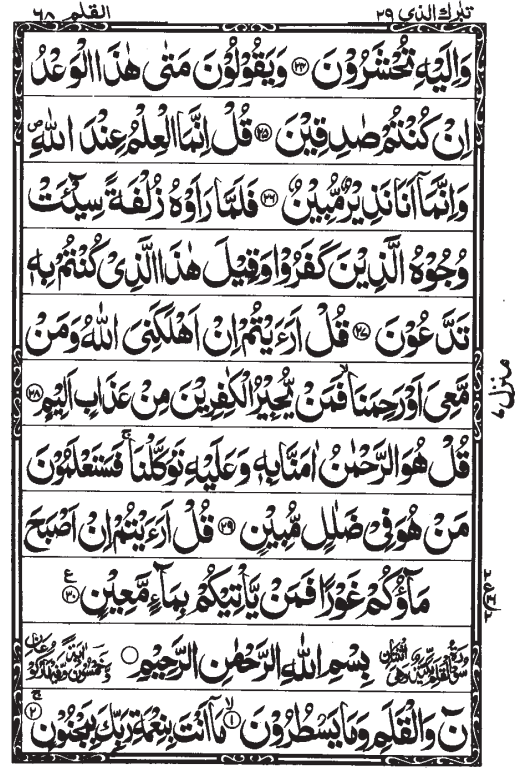 تبٰرك الذي ٢٩
القلم ٦٨
وَاِلَيْهِ تُحْشَرُوْنَ ﴿۲۴﴾ وَيَقُوْلُوْنَ مَتٰى هٰذَا الْوَعْدُ
اِنْ كُنْتُمْ صٰدِقِيْنَ ﴿۲۵﴾ قُلْ اِنَّمَا الْعِلْمُ عِنْدَ اللّٰهِ ۪
وَاِنَّمَاۤ اَنَا نَذِيْرٌ مُّبِيْنٌ ﴿۲۶﴾ فَلَمَّا رَاَوْهُ زُلْفَةً سِيْٓـَٔتْ
وُجُوْهُ الَّذِيْنَ كَفَرُوْا وَقِيْلَ هٰذَا الَّذِيْ كُنْتُمْ بِهٖ
تَدَّعُوْنَ ﴿۲۷﴾ قُلْ اَرَءَيْتُمْ اِنْ اَهْلَكَنِيَ اللّٰهُ وَمَنْ
مَّعِيَ اَوْ رَحِمَنَا ۙ فَمَنْ يُّجِيْرُ الْكٰفِرِيْنَ مِنْ عَذَابٍ اَلِيْمٍ ﴿۲۸﴾
قُلْ هُوَ الرَّحْمٰنُ اٰمَنَّا بِهٖ وَعَلَيْهِ تَوَكَّلْنَا ۚ فَسَتَعْلَمُوْنَ
مَنْ هُوَ فِيْ ضَلٰلٍ مُّبِيْنٍ ﴿۲۹﴾ قُلْ اَرَءَيْتُمْ اِنْ اَصْبَحَ
مَآؤُكُمْ غَوْرًا فَمَنْ يَّاْتِيْكُمْ بِمَآءٍ مَّعِيْنٍ ﴿۳۰﴾ ع
بِسْمِ اللّٰهِ الرَّحْمٰنِ الرَّحِيْمِ ○
نٓ وَالْقَلَمِ وَمَا يَسْطُرُوْنَ ۙ ﴿۱﴾ مَاۤ اَنْتَ بِنِعْمَةِ رَبِّكَ بِمَجْنُوْنٍ ۚ ﴿۲﴾